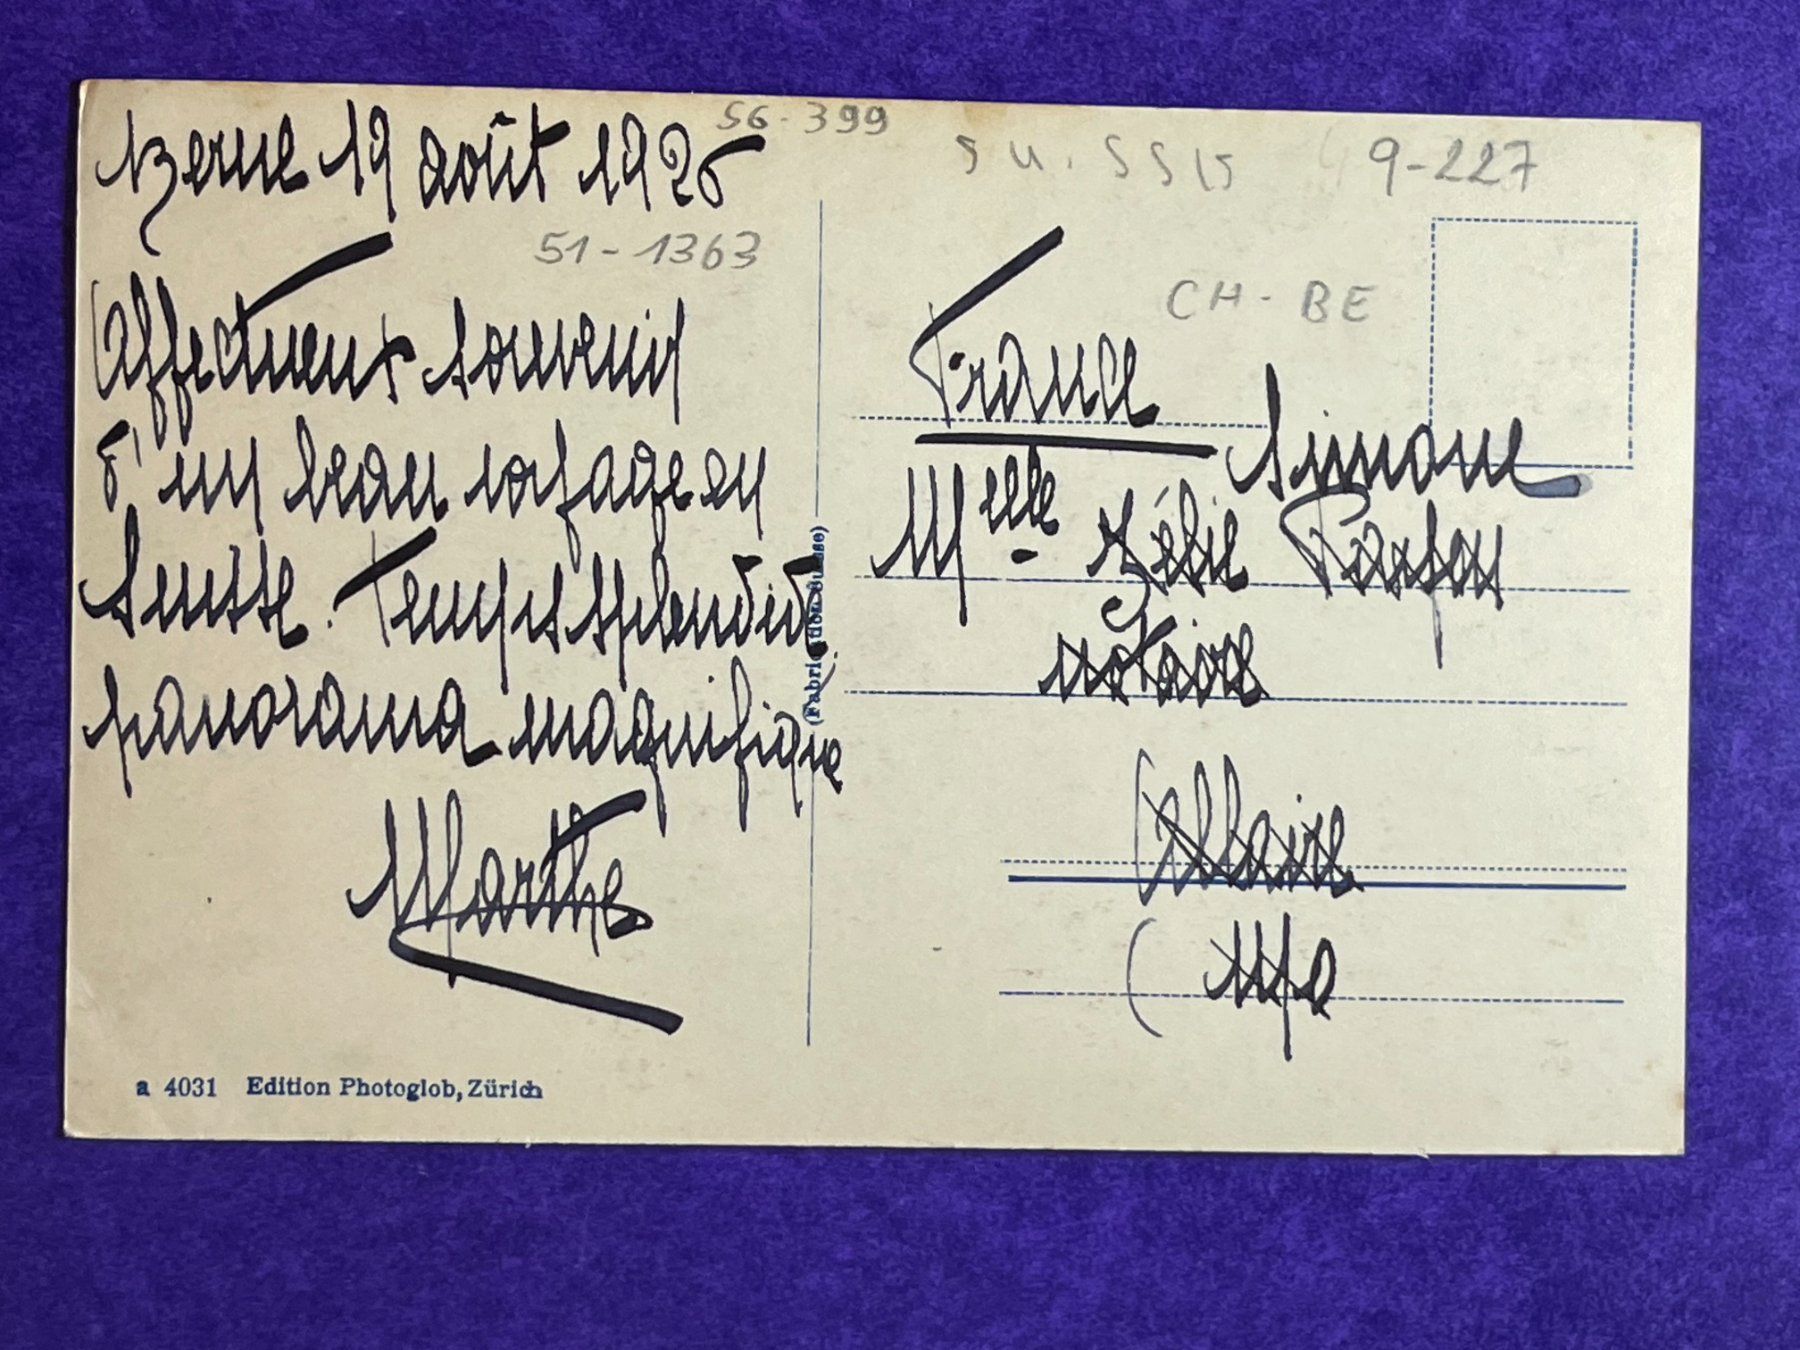 Berne 19 août 1926
56-399
51-1363
Affectueux souvenir
d'un beau voyage en
Suisse. Temps splendide,
panorama magnifique
Marthe
a 4031 Edition Photoglob, Zürich
SUISSE
9-227
CH-BE
France
Simone
Melle Zélie
notaire
Allaire
(